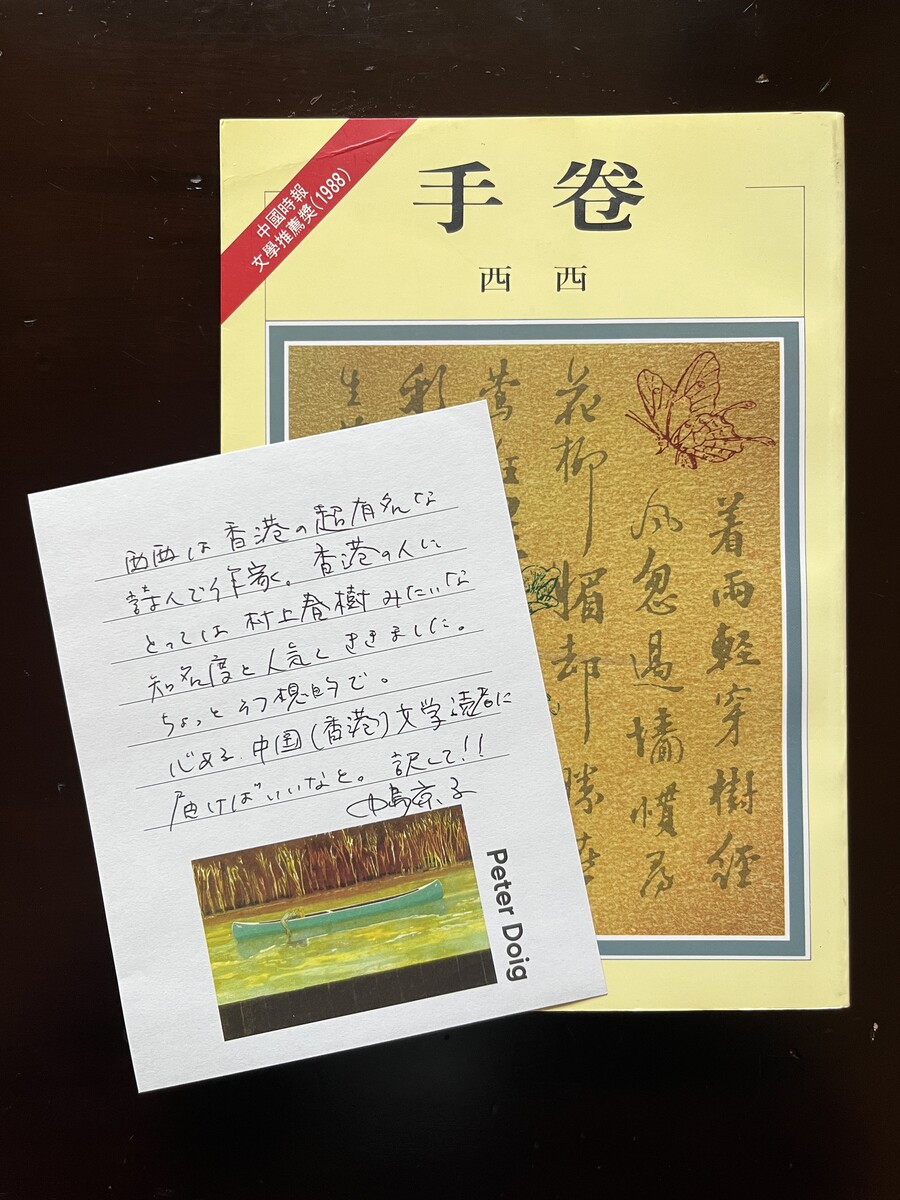 中國時報
文學推薦獎(1988)
手卷
西西
着雨輕穿樹經
風忽過墻慣
花柳媚却勝
鶯狂
彩
生
西西は香港の超有名な
詩人で作家。香港の人に
とっては村上春樹みたいな
知名度と人気とききました。
ちょっと幻想的で。
心ある中国(香港)文学読者に
届けばいいなと。訳して!!
中島京子
Peter Doig